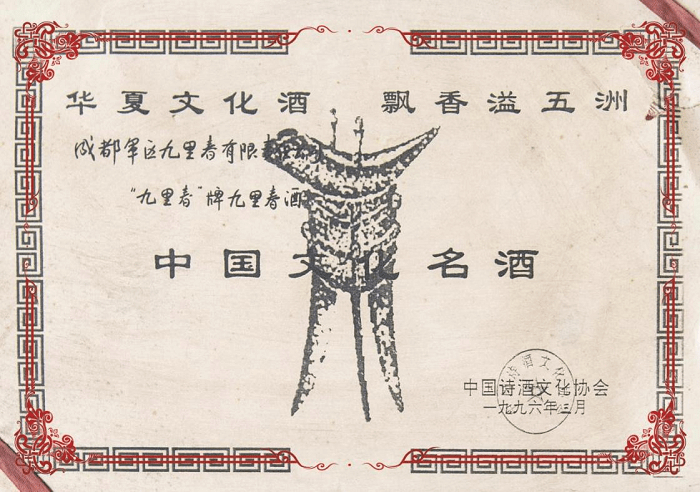 华夏文化酒 飘香溢五洲
成都军区九里春有限责任公司
“九里春”牌九里春酒
中国文化名酒
中国诗酒文化协会
一九九六年三月